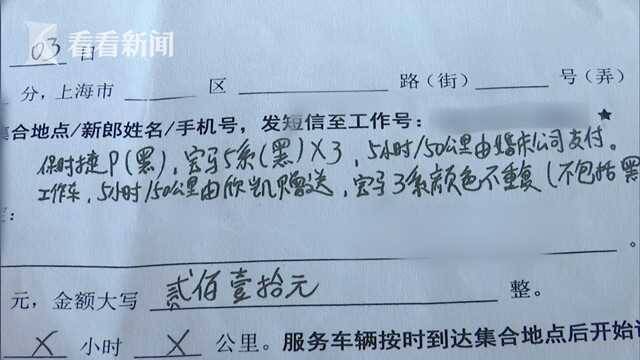 看看新闻
03 日
分，上海市 区 路（街） 号（弄）
集合地点/新郎姓名/手机号，发短信至工作号：
保时捷P（黑），宝马5系（黑）X3，5小时/50公里由婚庆公司支付。
工作车，5小时/50公里由欣凯赠送，宝马3系颜色不重复（不包括黑
：
。
元，金额大写 贰佰壹拾元 整。
X 小时 X 公里。服务车辆按时到达集合地点后开始